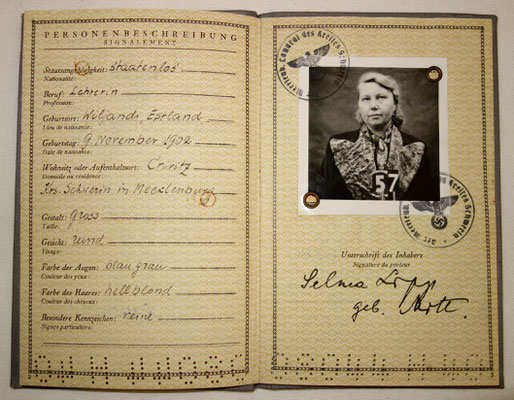 PERSONENBESCHREIBUNG
SIGNALEMENT
Staatsangehörigkeit: Staatenlos
Nationalité:
Beruf: Lehrerin
Profession:
Geburtsort: Wiljandi, Estland
Lieu de naissance:
Geburtstag: 9. November 1902
Date de naissance:
Wohnsitz oder Aufenthaltsort: Crivitz
Domicile ou résidence:
Krs. Schwerin in Mecklenburg
Gestalt: Gross
Taille:
Gesicht: rund
Visage:
Farbe der Augen: blau grau
Couleur des yeux:
Farbe des Haares: hellblond
Couleur des cheveux:
Besondere Kennzeichen: keine
Signes particuliers:
Landrat des Kreises Schwerin
57
Unterschrift des Inhabers
Signature du porteur
Selma
geb.